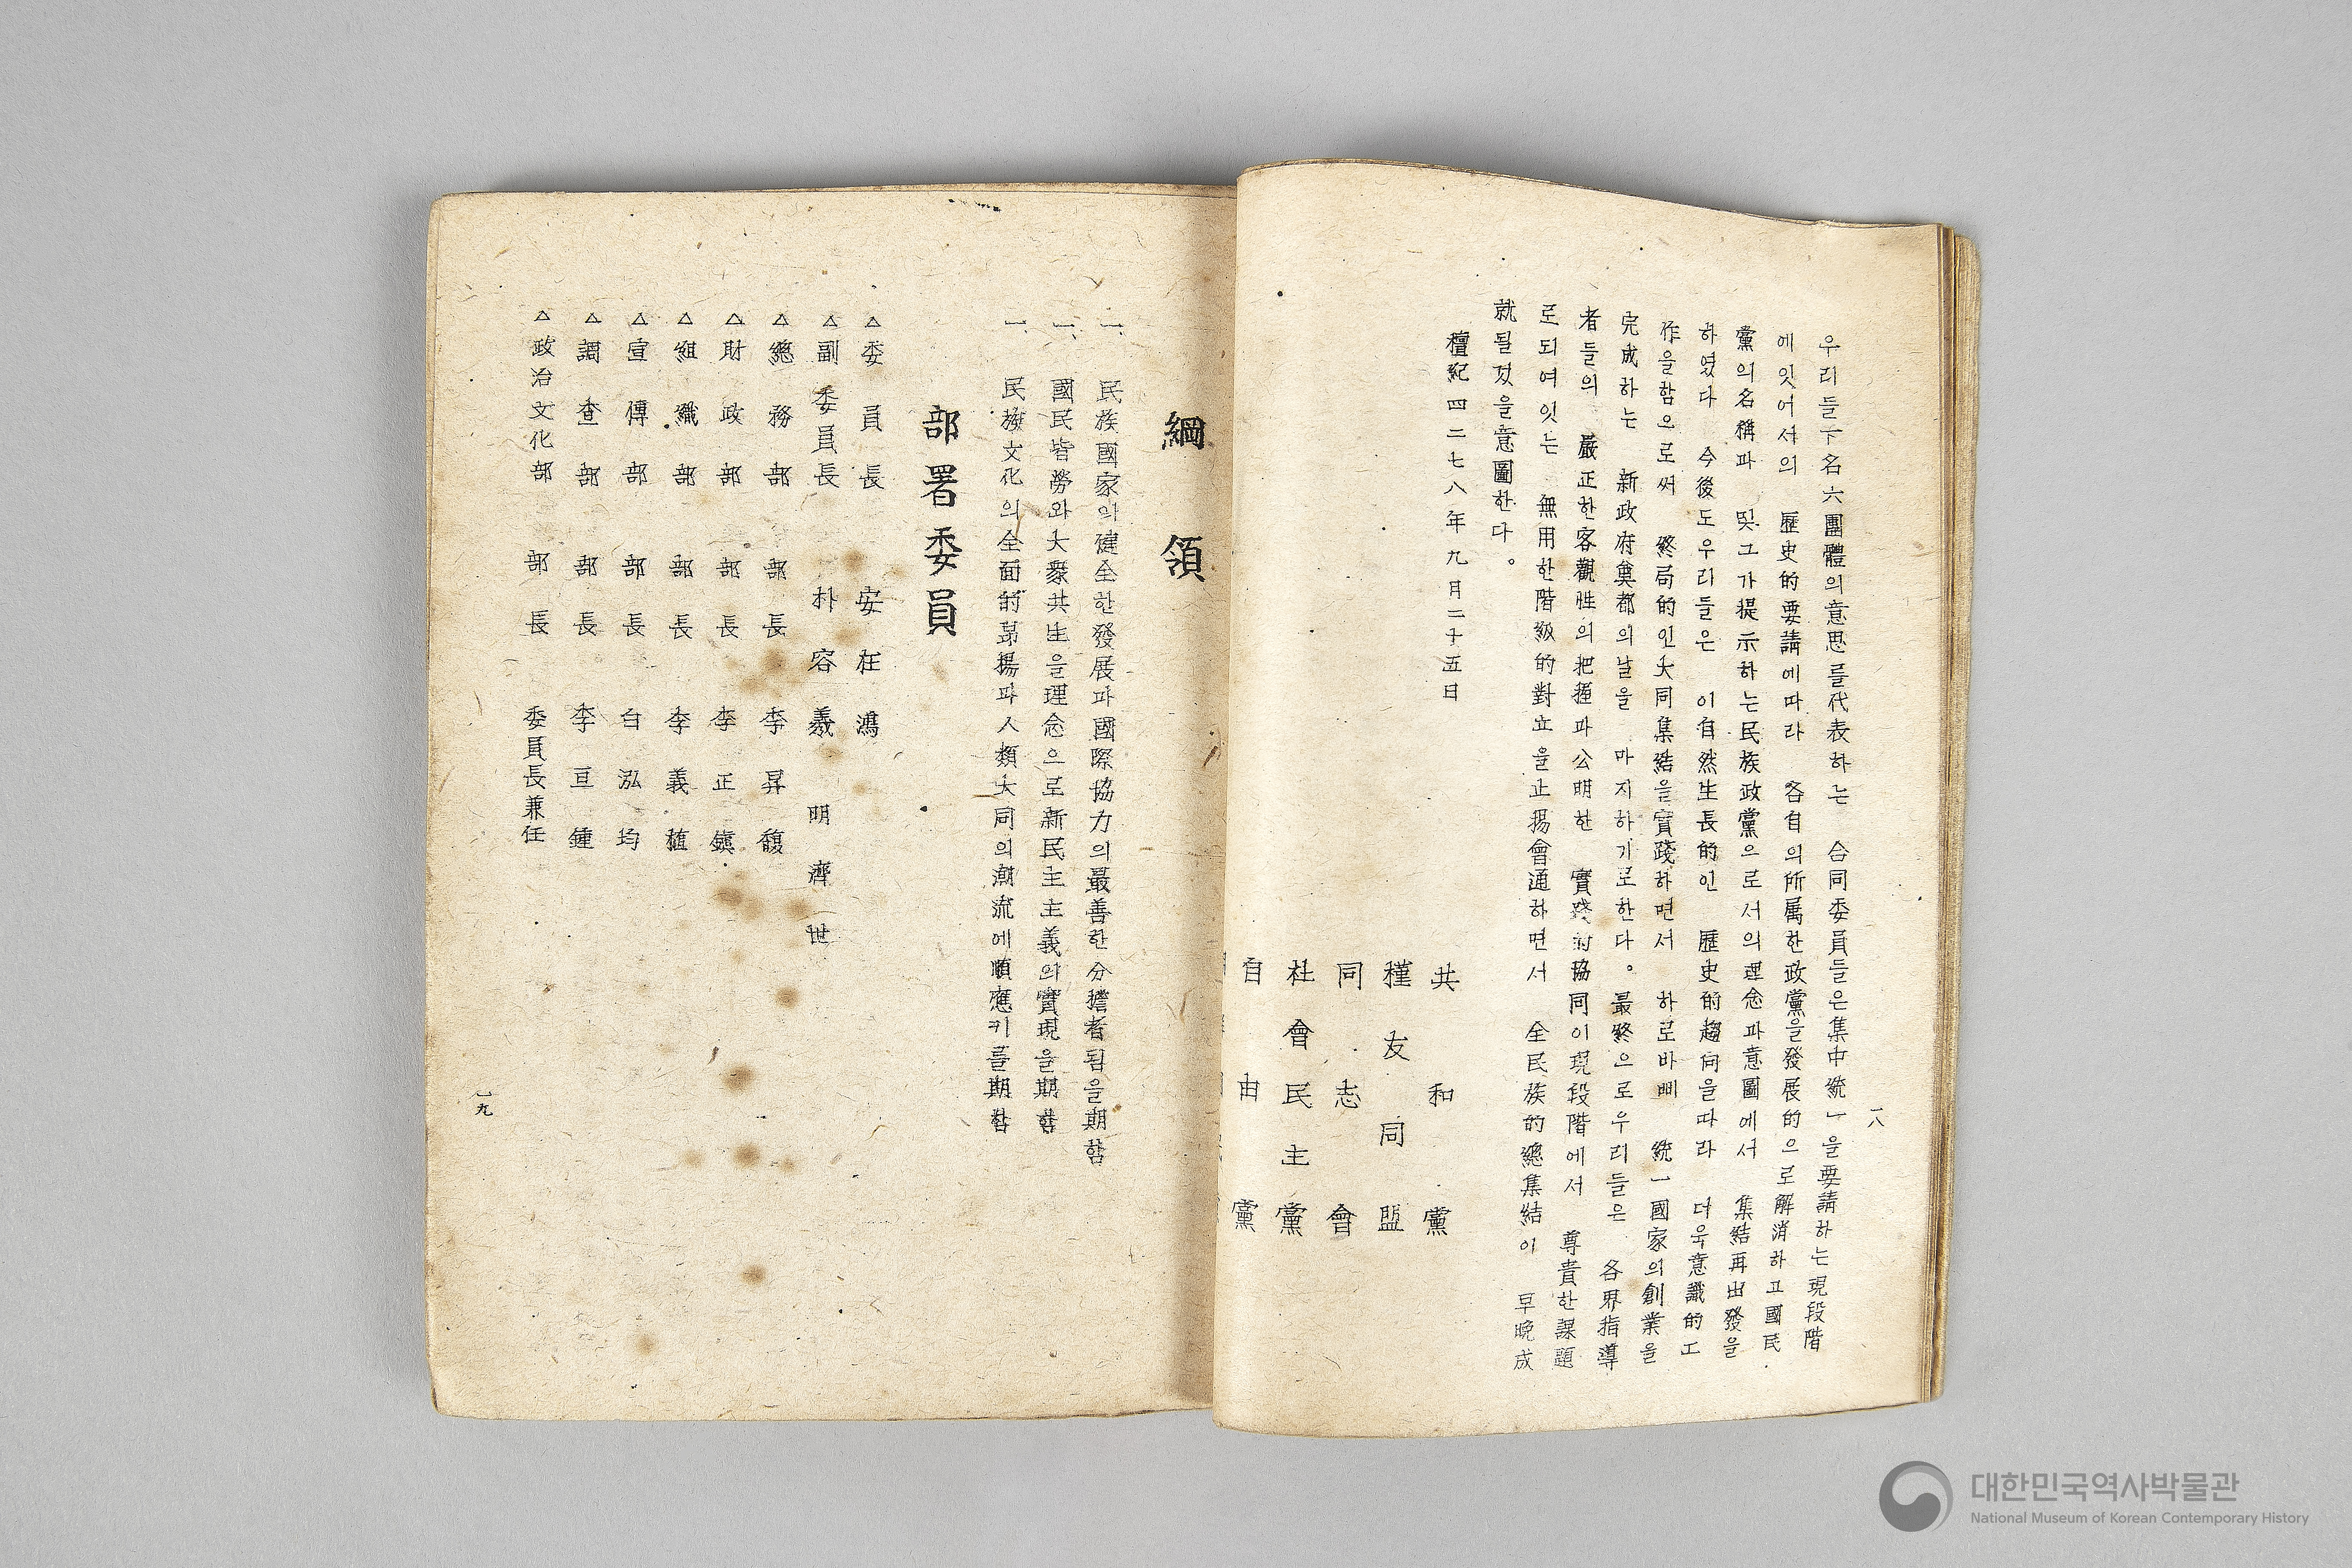 우리들下名六團體의意思를代表하는 合同委員들은集中統一을要請하는現段階
에잇어서의 歷史的要請에따라 各自의所属한政黨을發展的으로解消하고國民
黨의名稱과 및그가提示하는民族政黨으로서의理念과意圖에서 集結再出發을
하였다 今後도우리들은 이自然生長的인 歷史的趨向을따라 더욱意識的工
作을함으로써 終局的인大同集結을實踐하면서 하로바삐 統一國家의創業을
完成하는 新政府奠都의날을 마지하기로한다。最終으로우리들은 各界指導
者들의 嚴正한客觀性의把握과公明한 實踐的協同이現段階에서 尊貴한課題
로되여잇는 無用한階級的對立을止揚會通하면서 全民族的總集結이 早晩成
就될것을意圖한다。
檀紀四二七八年九月二十五日
共和黨
槿友同盟
同志會
社會民主黨
自由黨
一八
綱領
一、民族國家의健全한發展과國際協力의最善한分擔者됨을期함
一、國民皆勞와大衆共生을理念으로新民主主義의實現을期함
一、民族文化의全面的昻揚과人類大同의潮流에順應키를期함
部署委員
△委員長 安在鴻
△副委員長 朴容羲 明濟世
△總務部 部長 李昇馥
△財政部 部長 李正鎭
△組織部 部長 李義植
△宣傳部 部長 白泓均
△調査部 部長 李亘鍾
△政治文化部 部長 委員長兼任
一九
대한민국역사박물관
National Museum of Korean Contemporary History